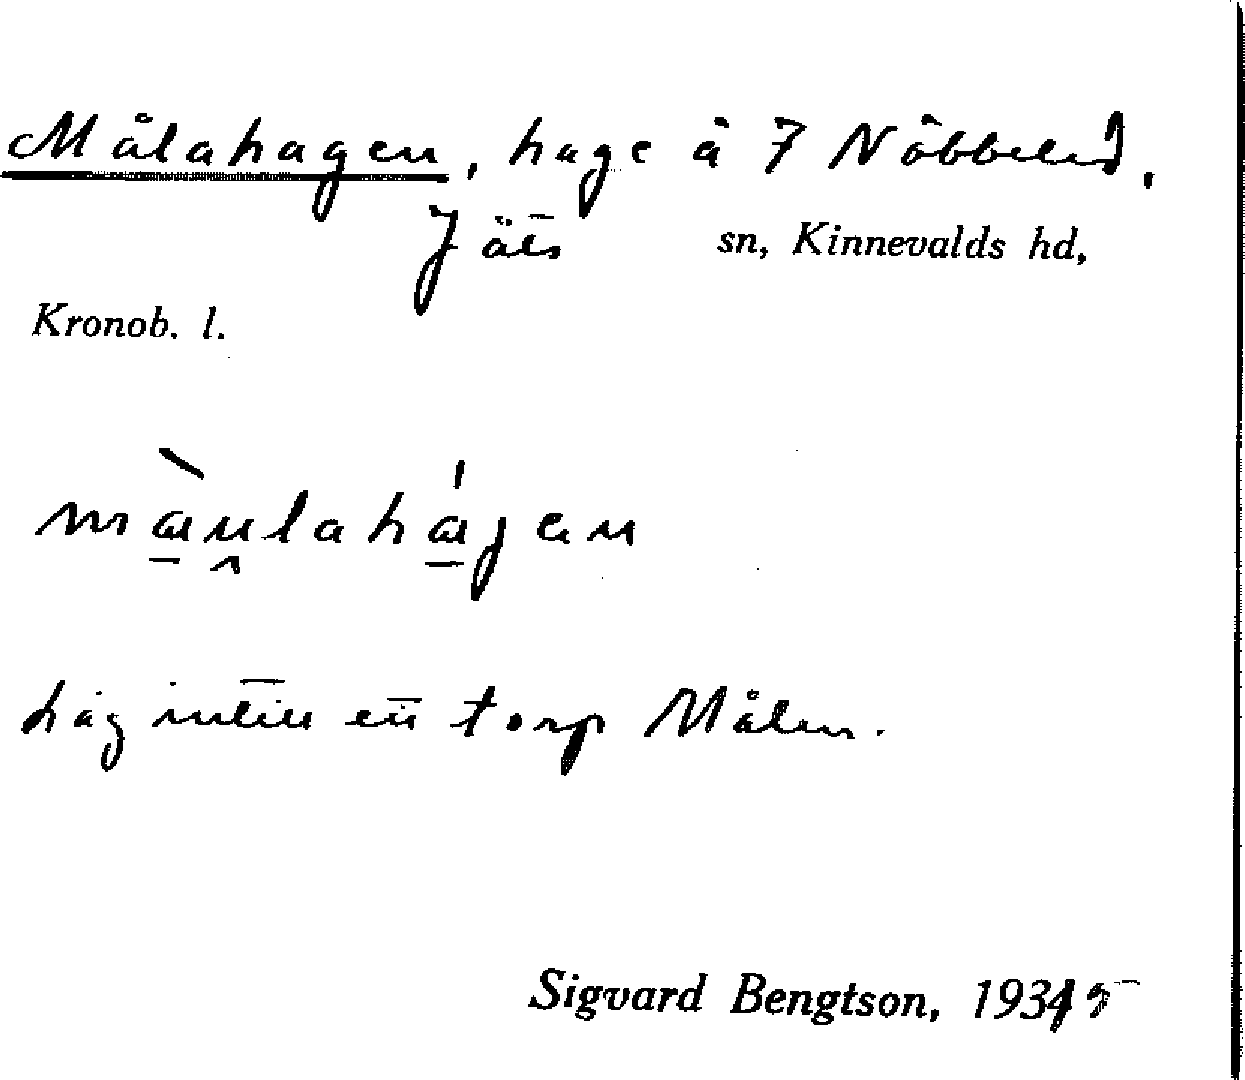 Målahagen, hage å 7 Nöbbeled,
Jäts sn, Kinnevalds hd,
Kronob. l.
låg intill en torp Målen.
Sigvard Bengtson, 1935